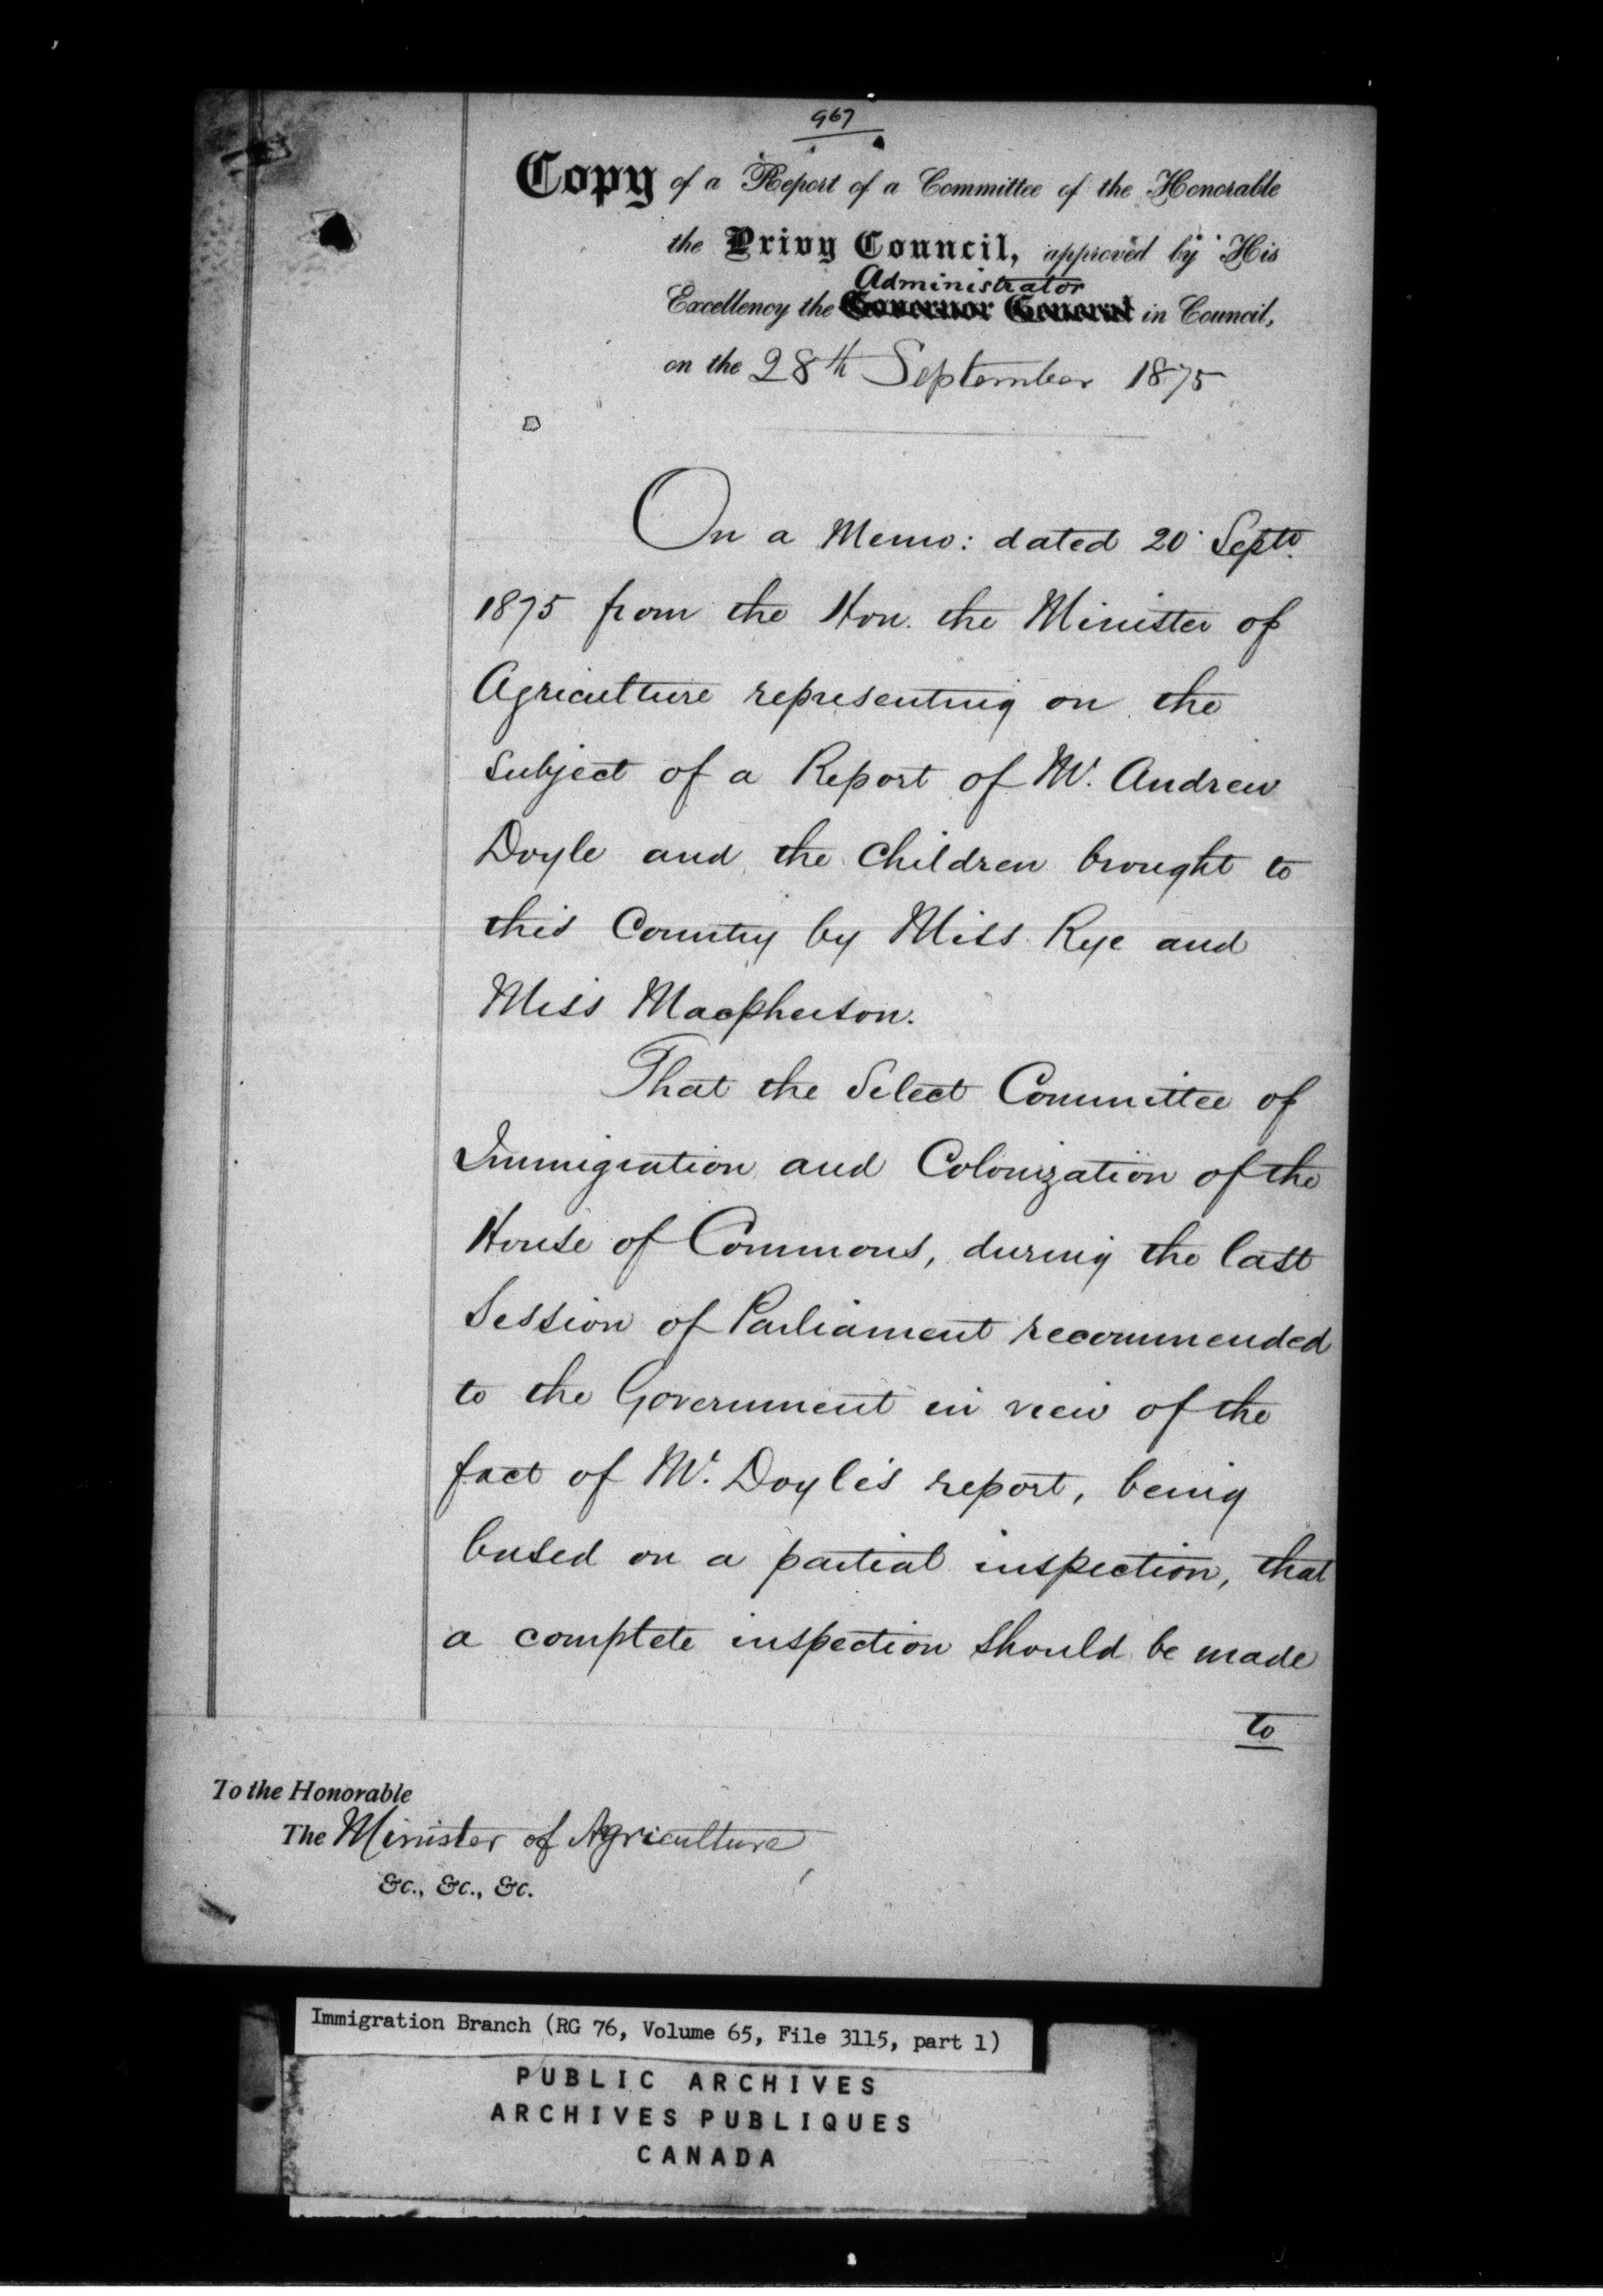 967
Copy of a Report of a Committee of the Honorable
the Privy Council, approved by His
Administrator
Excellency the Governor General in Council,
on the 28th September 1875
On a Memo: dated 20 Septr
1875 from the Hon. the Minister of
Agriculture representing on the
subject of a Report of Mr. Andrew
Doyle and the children brought to
this Country by Miss Rye and
Miss Macpherson.
That the Select Committee of
Immigration and Colonization of the
House of Commons, during the last
Session of Parliament recommended
to the Government in view of the
fact of Mr. Doyle's report, being
based on a partial inspection, that
a complete inspection should be made
to
To the Honorable
The Minister of Agriculture
&c., &c., &c.
Immigration Branch (RG 76, Volume 65, File 3115, part 1)
PUBLIC ARCHIVES
ARCHIVES PUBLIQUES
CANADA